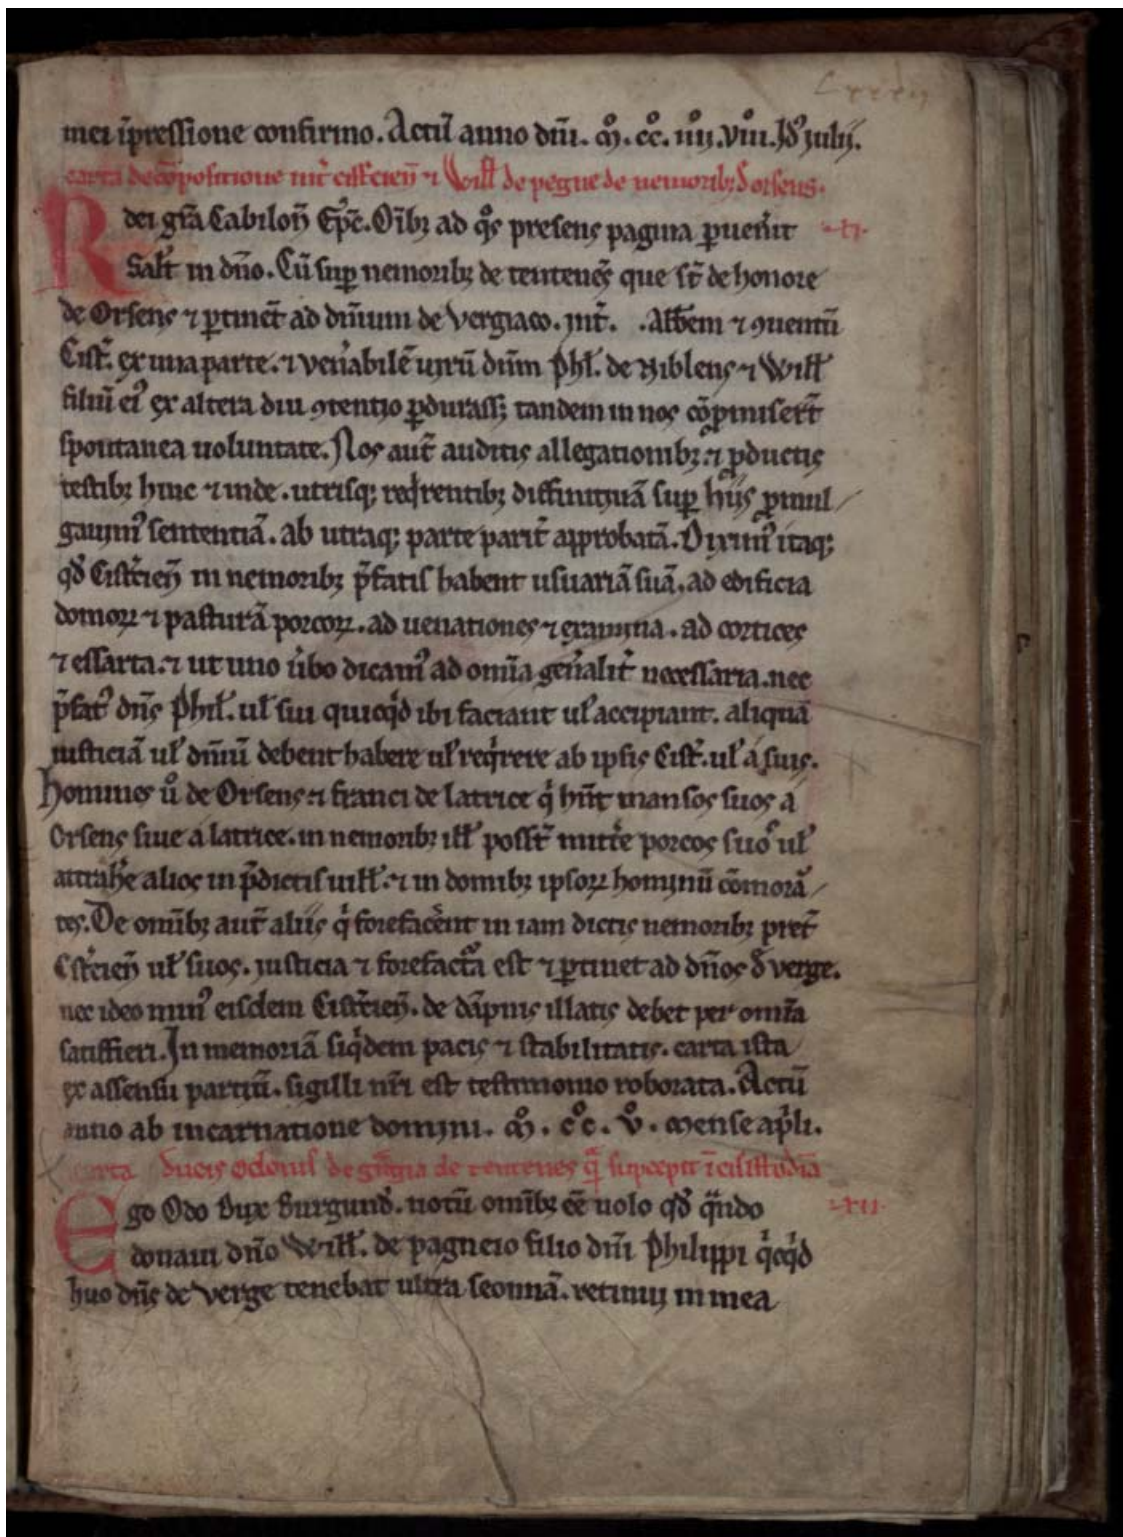 lxxxiiij
mei īpressione confirmo. Actū anno dnī. mͦ. ccͦ. iiij. viii. Idꝰ Julij.
carta de cōpositione int̄ cisterc̄ień ⁊ Will̄ de pegne de nemoribꝫ d̄ orsens.
R dei gr̄a Cabiloń Ep̄c. Oīb̄ꝫ ad qͦs presens pagina ꝑuen̄it .xi.
Sal̄t in dn̄o. Cū suꝑ nemoribꝫ de tentenes que st̄ de honore
de Orsens ⁊ ꝑtinēt ad dn̄ium de Vergiaco. int̄. .Abb̄em ⁊ ꝯuentū
Cist̄. ex una parte. ⁊ ven̄abilē uirū dn̄m Ph̄l. de Riblens ⁊ Will̄
filiū eiꝰ ex altera diu ꝯtentio ꝑdurassꝫ tandem in nos cōpromiser̄t
spontanea uoluntate. Nos aut̄ auditis allegationibꝫ ⁊ ꝓductis
testibꝫ hinc ⁊ inde. utrisqꝫ reqͥrentibꝫ diffinitiuā suꝑ hijs ꝓmul
gauimꝰ sententiā. ab utraqꝫ parte parit̄ approbatā. Diximꝰ itaqꝫ
qd̄ Cistercień in nemoribꝫ p̄fatis habent usuariā suā. ad edificia
domoꝝ ⁊ pasturā porcoꝝ. ad uenationes ⁊ examina. ad cortices
⁊ essarta. ⁊ ut uno u̅bo dicamꝰ ad om̄ia gen̄alit̄ necessaria. nec
p̄fatꝰ dn̄s Phil̄. ul̄ sui quicqͥd ibi faciant ul̄ accipiant. aliquā
iusticiā ul̄ dn̄iū debent habere ul̄ reqͥrere ab ipsis Cist̄. ul̄ a suis.
Homines uͦ de Orsens ⁊ franci de latrice qͥ hn̄t mansos suos a
Orsens siue a latrice. in nemoribꝫ ill̄ posst̄ mitt̄e porcos suos ul̄
attrah̄e alios in p̄dictis uill̄. ⁊ in domibꝫ ipsoꝝ hominū cōmorā
tes. De omībꝫ aut̄ aliis qͥ forefac̄ent in iam dictis nemoribꝫ pret̄
Cistercień ul̄ suos. iusticia ⁊ forefactū est ⁊ ꝑtinet ad dn̄os d̄ verge.
nec ideo minꝰ eisdem Cistercień. de dāpnis illatis debet per om̄ia
satisfieri. In memoriā siqͥdem pacis ⁊ stabilitatis. carta ista
ex assensu partiū. sigilli nr̄i est testimonio roborata. Actū
anno ab incarnatione domini. mͦ. cͦc. vͦ. mense apͥli.
carta ducis odonis de gͣngia de tentenes qͣ suscepit ī custodiā
Ego Odo Dux Burgund̄. notū omībꝫ eē uolo qd̄ qͣndo .xii.
donaui dn̄o Will̄. de pagneio filio dn̄i Philippi qͥcqͥd
huo dn̄s de Verge tenebat ultra seonnā. retinui in mea